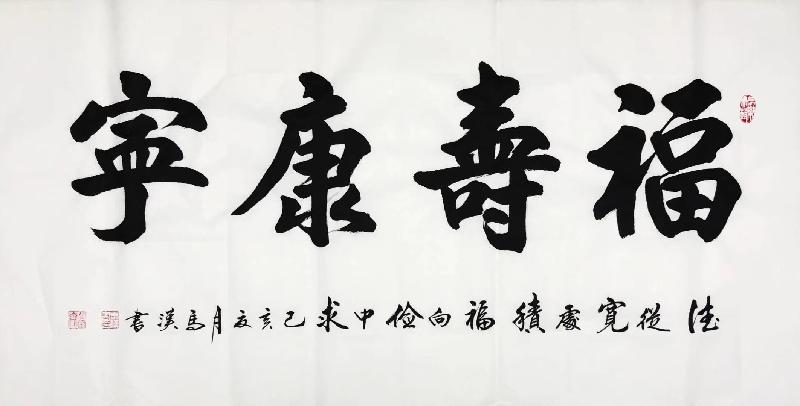 福壽康寧
德從寬處積福向儉中求己亥夏月馬漢書